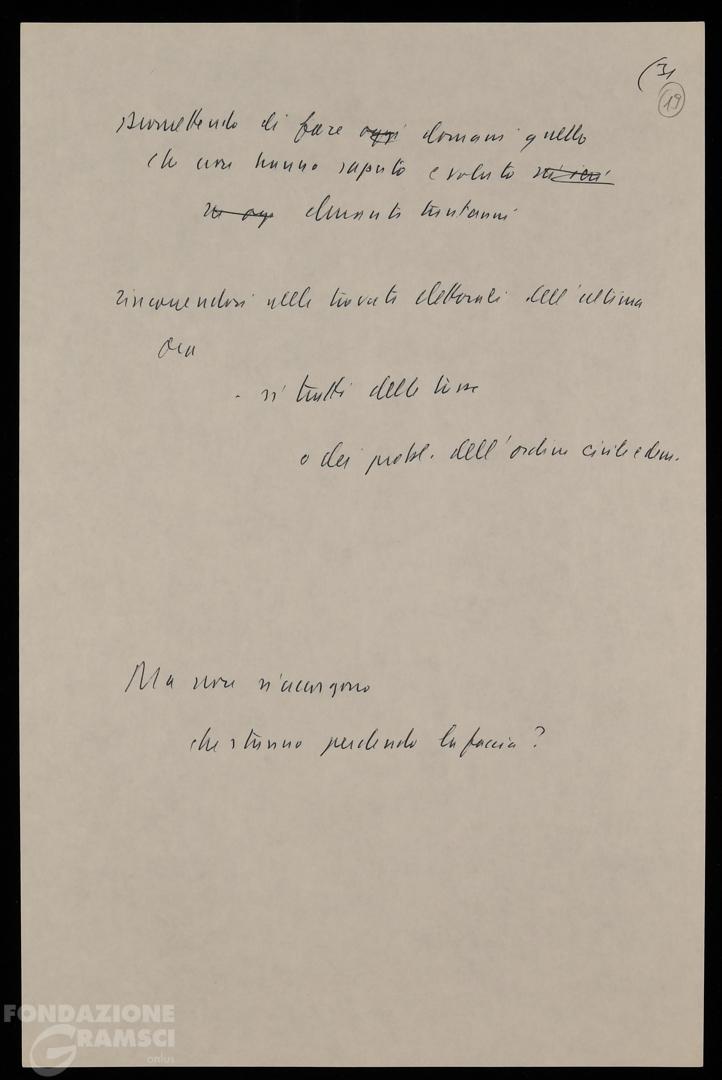 (3)
19
promettendo di fare oggi domani quello
che non hanno saputo e voluto né ieri
né oggi durante trent'anni
rincorrendosi nelle trovate elettorali dell'ultima
ora
- si tratti delle tasse
o dei probl. dell'ordine civile e dem.
Ma non s'accorgono
che stanno perdendo la faccia?
FONDAZIONE
GRAMSCI
onlus